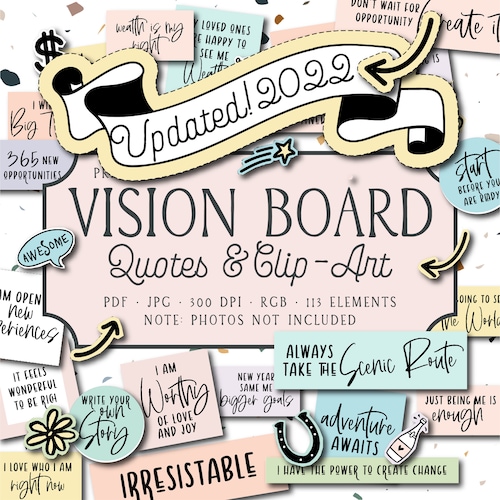 wealth is my
right
LOVED ONES
ARE HAPPY TO
SEE ME
Wealthy
DON'T WAIT FOR
OPPORTUNITY
Create it
Updated! 2022
I
Big
365 NEW
OPPORTUNITIES
start
BEFORE YOU
ARE READY
AWESOME
VISION BOARD
Quotes & Clip-Art
PDF · JPG · 300 DPI · RGB · 113 ELEMENTS
NOTE: PHOTOS NOT INCLUDED
AM OPEN
new
experiences
GOING TO SEE
the World
ALWAYS
TAKE THE Scenic Route
IT FEELS
WONDERFUL
TO BE RICH
I AM
Worthy
OF LOVE
AND JOY
NEW YEAR
SAME ME
bigger goals
JUST BEING ME IS
enough
WRITE YOUR
own
Story
adventure
AWAITS
I LOVE WHO I AM
right now
IRRESISTABLE
I HAVE THE POWER TO CREATE CHANGE